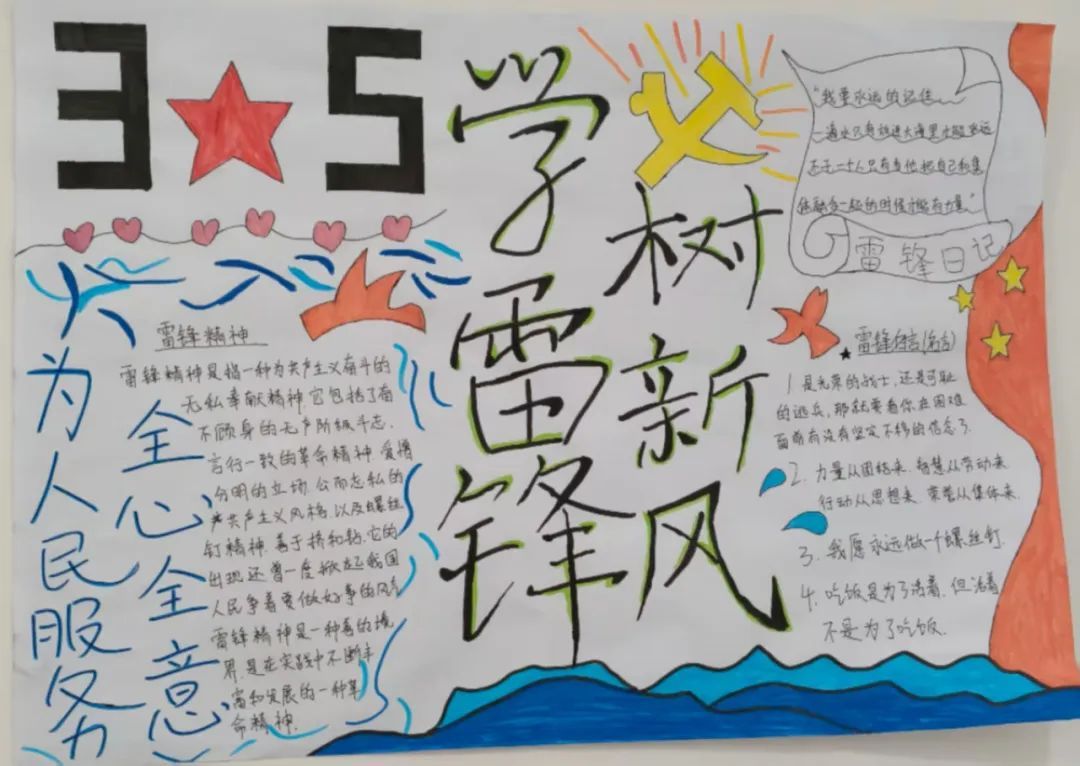 3 5
学雷锋
树新风
"我要永远的记住……
一滴水只有放进大海里才能永远
还干一个人只有当他把自己和集
体融合一起的时候才能有力量"
雷锋日记
全心全意
为人民服务
雷锋精神
雷锋精神是指一种为共产主义奋斗的
无私奉献精神,它包括了奋
不顾身的无产阶级斗志.
言行一致的革命精神.爱憎
分明的立场.公而忘私的
共产主义风格.以及螺丝
钉精神.善于挤和钻,它的
出现还曾一度掀起我国
人民争着要做好事的风气
雷锋精神是一种高的境
界,是在实践中不断丰
富和发展的一种革
命精神.
雷锋名言(名言)
1.是光荣的战士,还是可耻
的逃兵,那就要看你在困难
面前有没有坚定不移的信念了.
2.力量从团结来,智慧从劳动来
行动从思想来.荣誉从集体来.
3.我愿永远做一个螺丝钉.
4.吃饭是为了活着,但活着
不是为了吃饭.